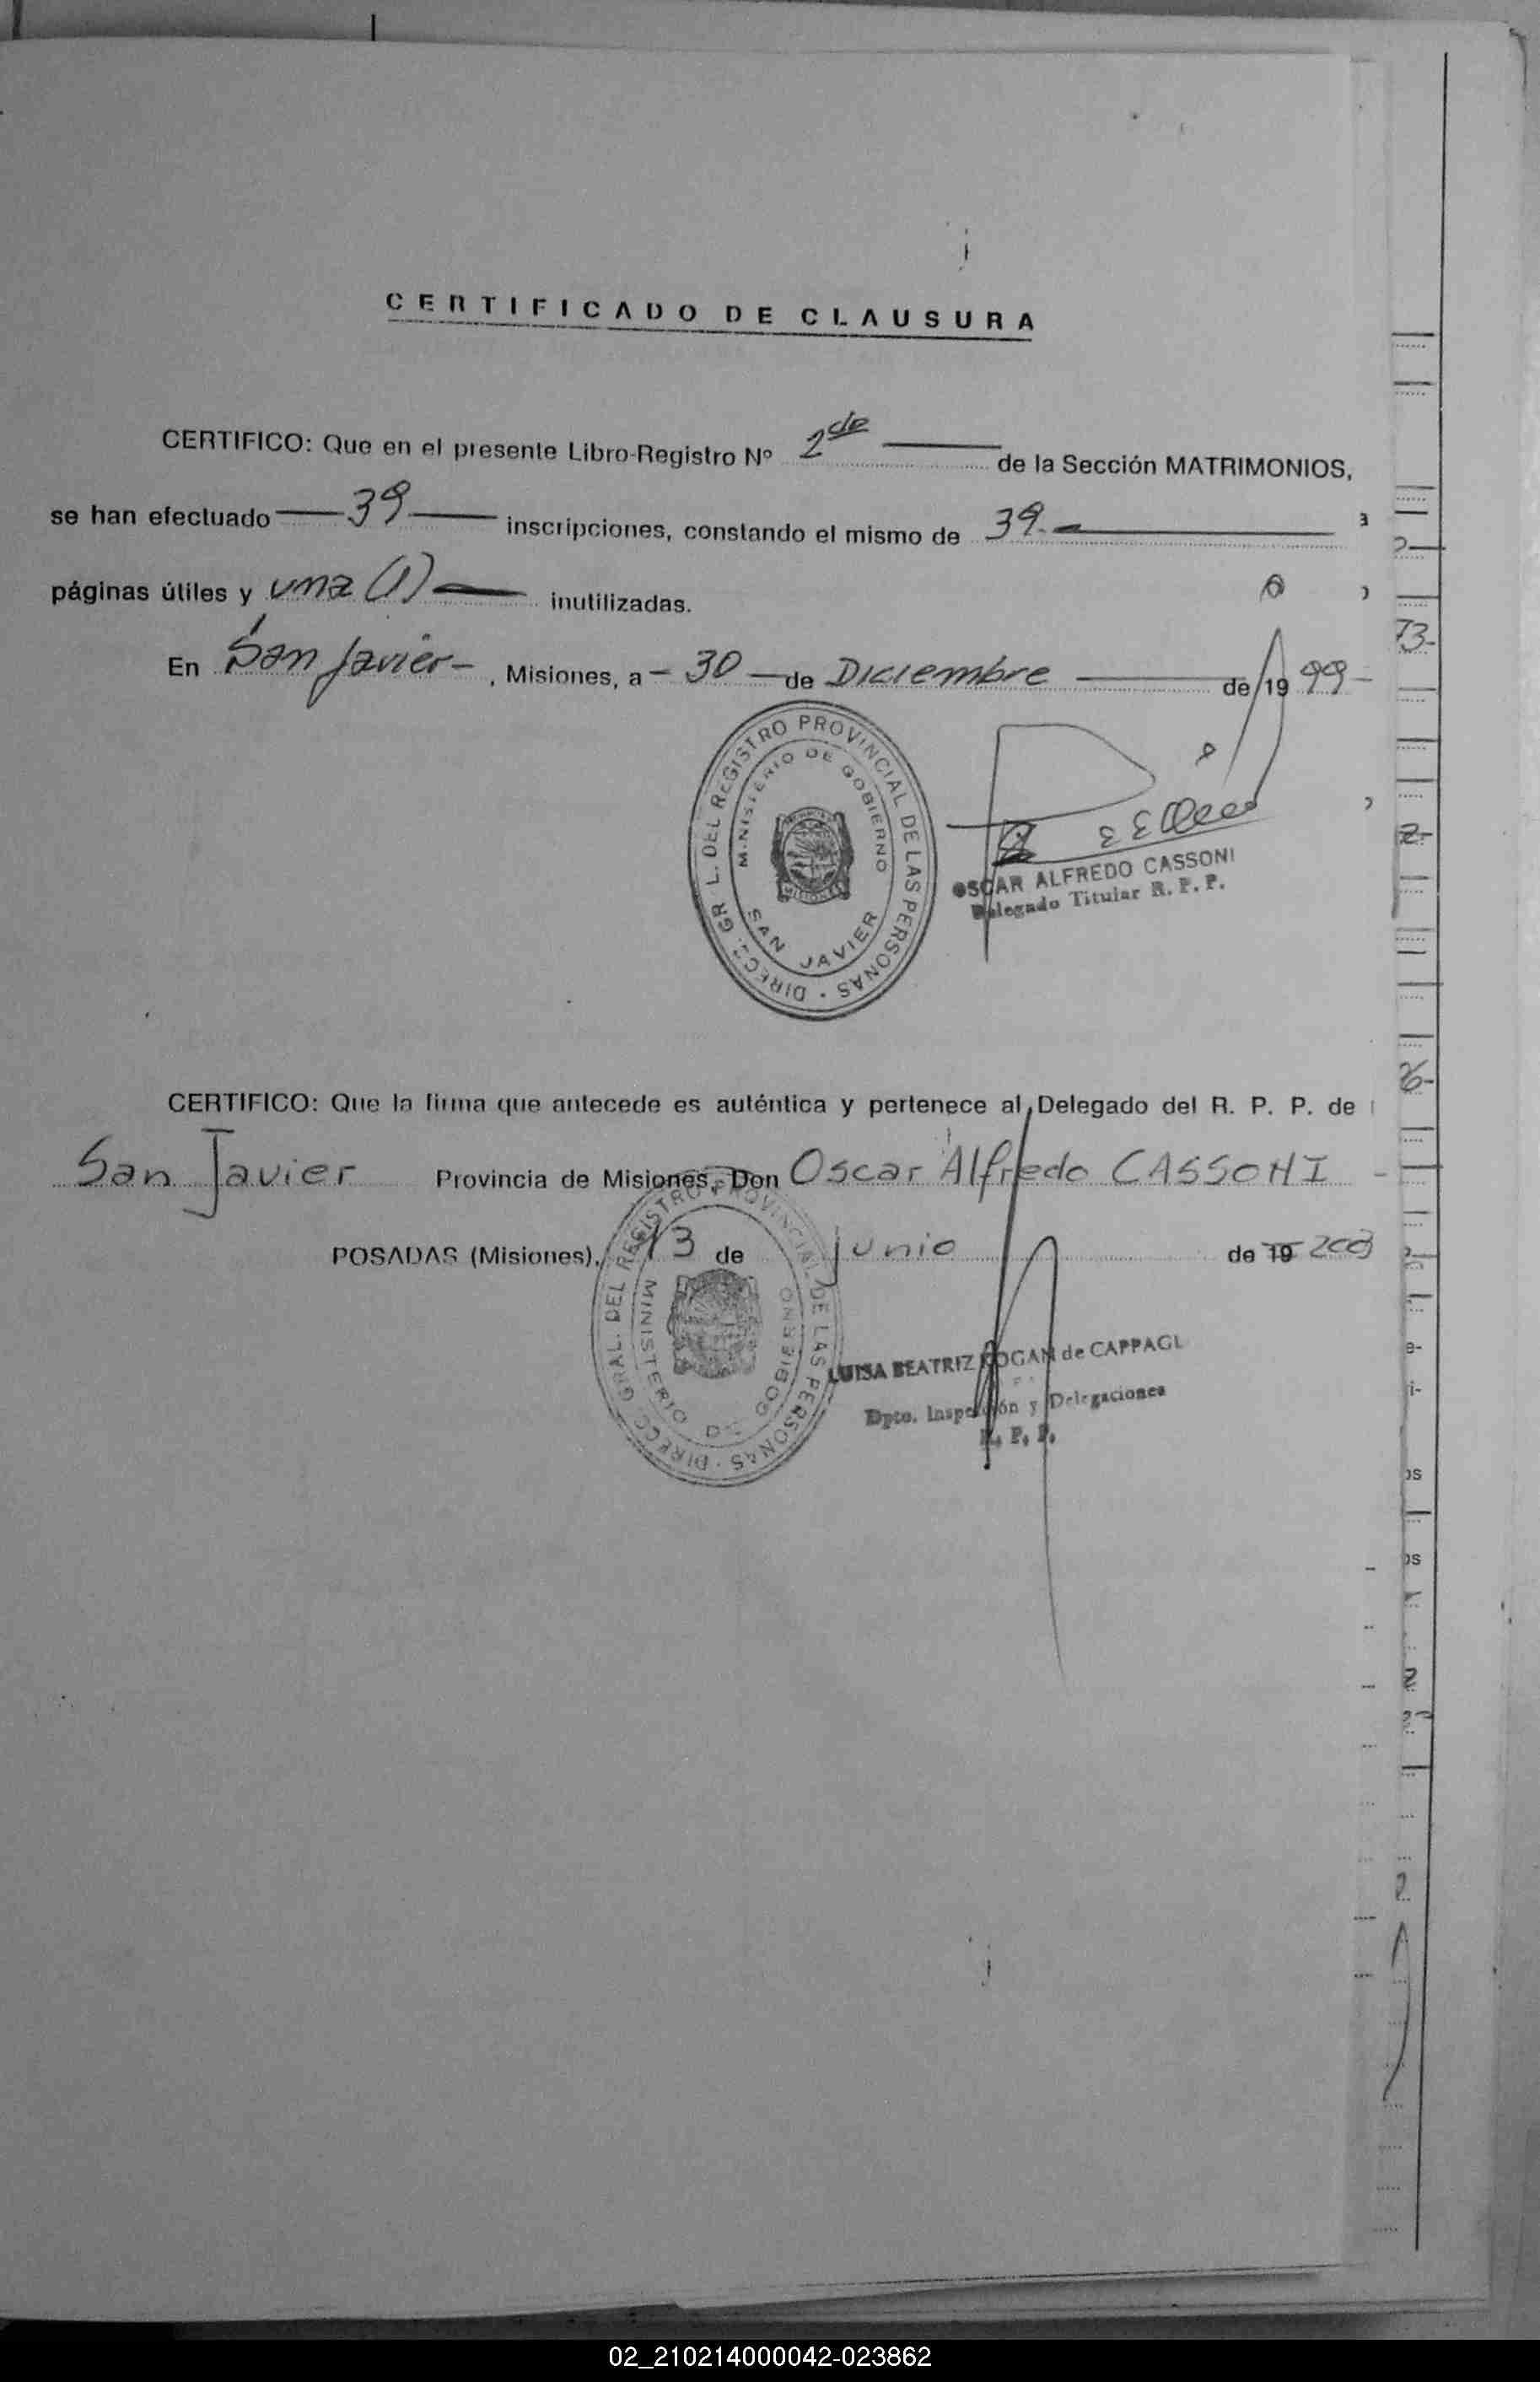 CERTIFICADO DE CLAUSURA
CERTIFICO: Que en el presente Libro-Registro Nº 2de de la Sección MATRIMONIOS,
se han efectuado 39 inscripciones, constando el mismo de 39
páginas útiles y una (1) inutilizadas.
En San Javier, Misiones, a 30 de Diciembre de 1999
DIRECC. GRAL. DEL REGISTRO PROVINCIAL DE LAS PERSONAS
MINISTERIO DE GOBIERNO
MISIONES
SAN JAVIER
OSCAR ALFREDO CASSONI
Delegado Titular R. P. P.
CERTIFICO: Que la firma que antecede es auténtica y pertenece al Delegado del R. P. P. de
San Javier Provincia de Misiones, Don Oscar Alfredo CASSONI
POSADAS (Misiones), 13 de junio de 19
DIRECC. GRAL. DEL REGISTRO PROVINCIAL DE LAS PERSONAS
MINISTERIO DE GOBIERNO
LUISA BEATRIZ de
Dpto. Inspección y Delegaciones
R. P. P.
02_210214000042-023862